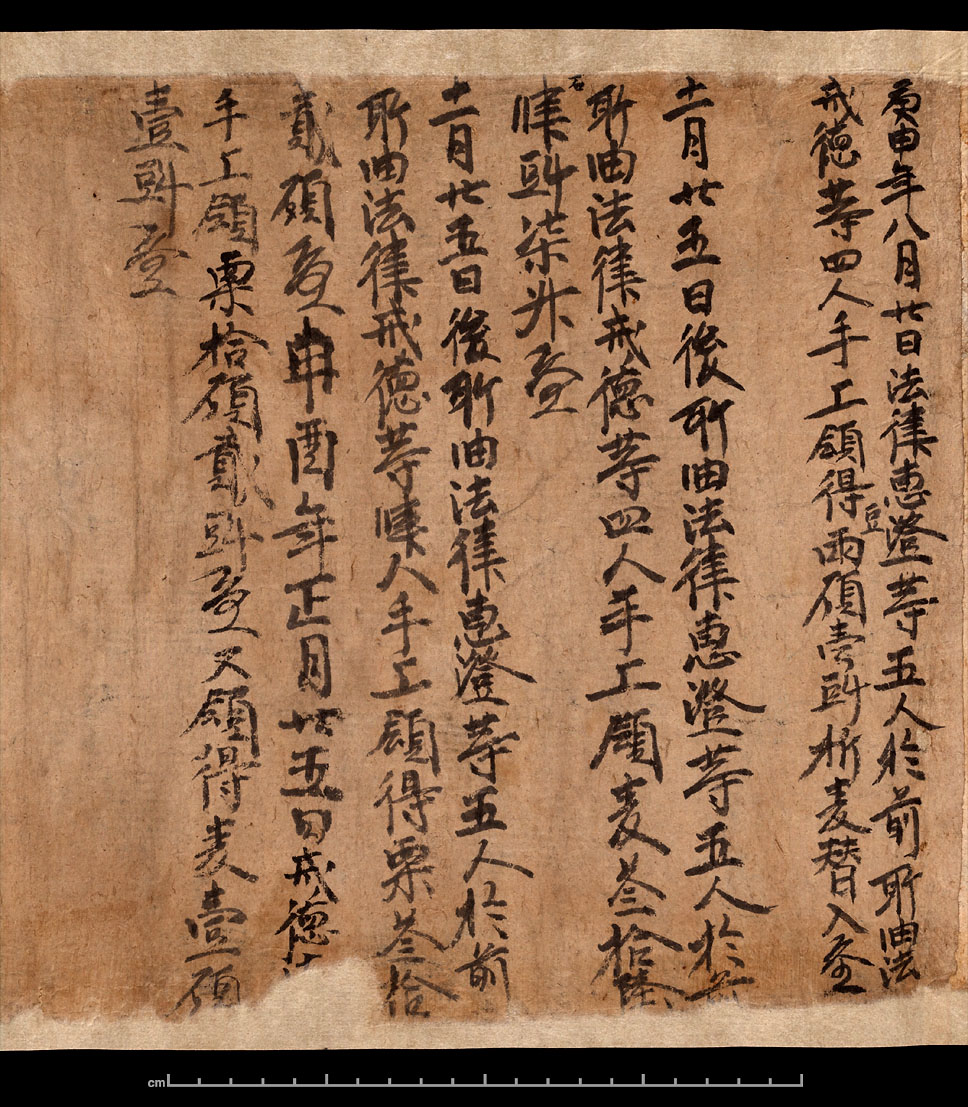 庚申年八月廿日法律惠澄等五人於前所由法
戒德等四人手工領得豆兩碩壹㪷折麦替入𫝊
十一月廿五日後所由法律惠澄等五人於前
所由法律戒德等四人手工領麦叁拾陸
石肆㪷柒升
十二月廿五日後所由法律惠澄等五人於前
所由法律戒德等肆人手工領得粟叁拾
貳碩 申酉年正月廿五日戒德法
手工領粟拾碩貳㪷 又領得麦壹碩
壹㪷